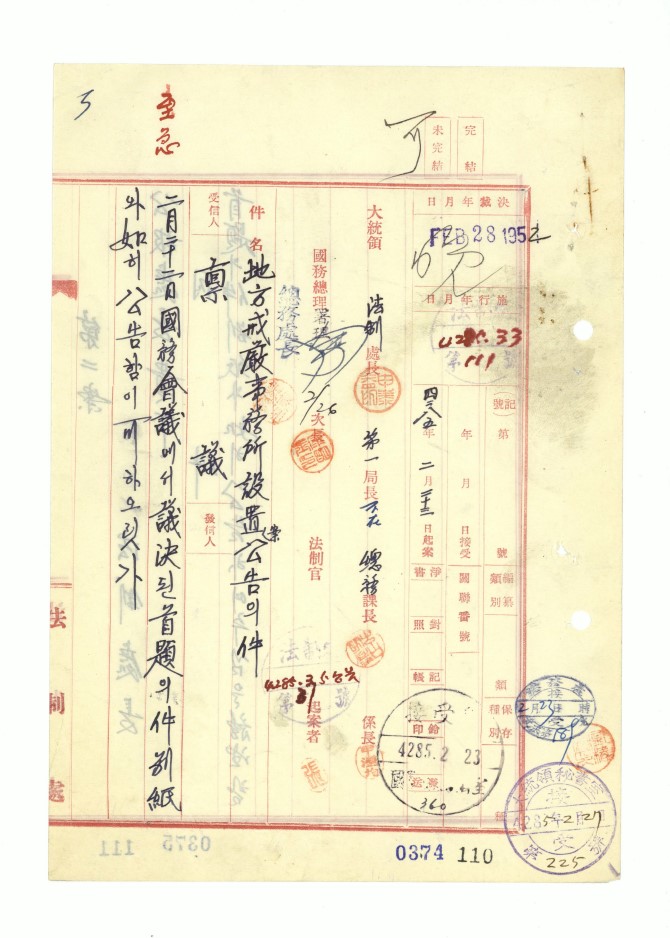 完結
未完結
可
至急
決裁年月日
FEB 28 1952
施行年月日
4285. 3 3
第 111 號
記號
第 號
年 月 日接受
四二八五年 二月 二十三日起案
編纂類別
關聯番號
淨書
對照
記帳
鈐印
類
保存種別
種
大統領
法制處長
第一局長 不在
總務課長
係長
國務總理署理
總務處長
2/26
次長
法制官
起案者
4285.3.5
件名
地方戒嚴事務所設置公告의件
案
受信人
發信人
稟議
二月二十二日國務會議에서議決된首題의件別紙
와如히公告함이可하오릿가
法制處
接受
4285.2.23
360
大統領秘書室
接受
4285年2月27日
第 225 號
0374 110
0375
111